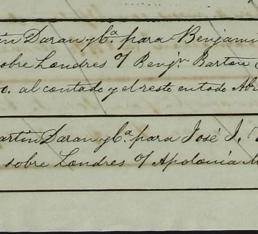 Daran y Cª para Benjamin
sobre Londres o/ Benjn Barton
al contado y el resto en todo
Martin Daran y Cª para José I.
sobre Londres o/ Apolonia